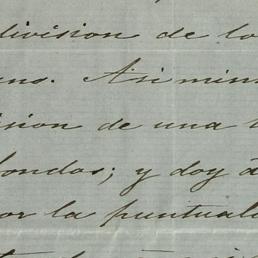 division de lo
ano. Asi mism
ision de una
fondos; y doy á
or la puntual